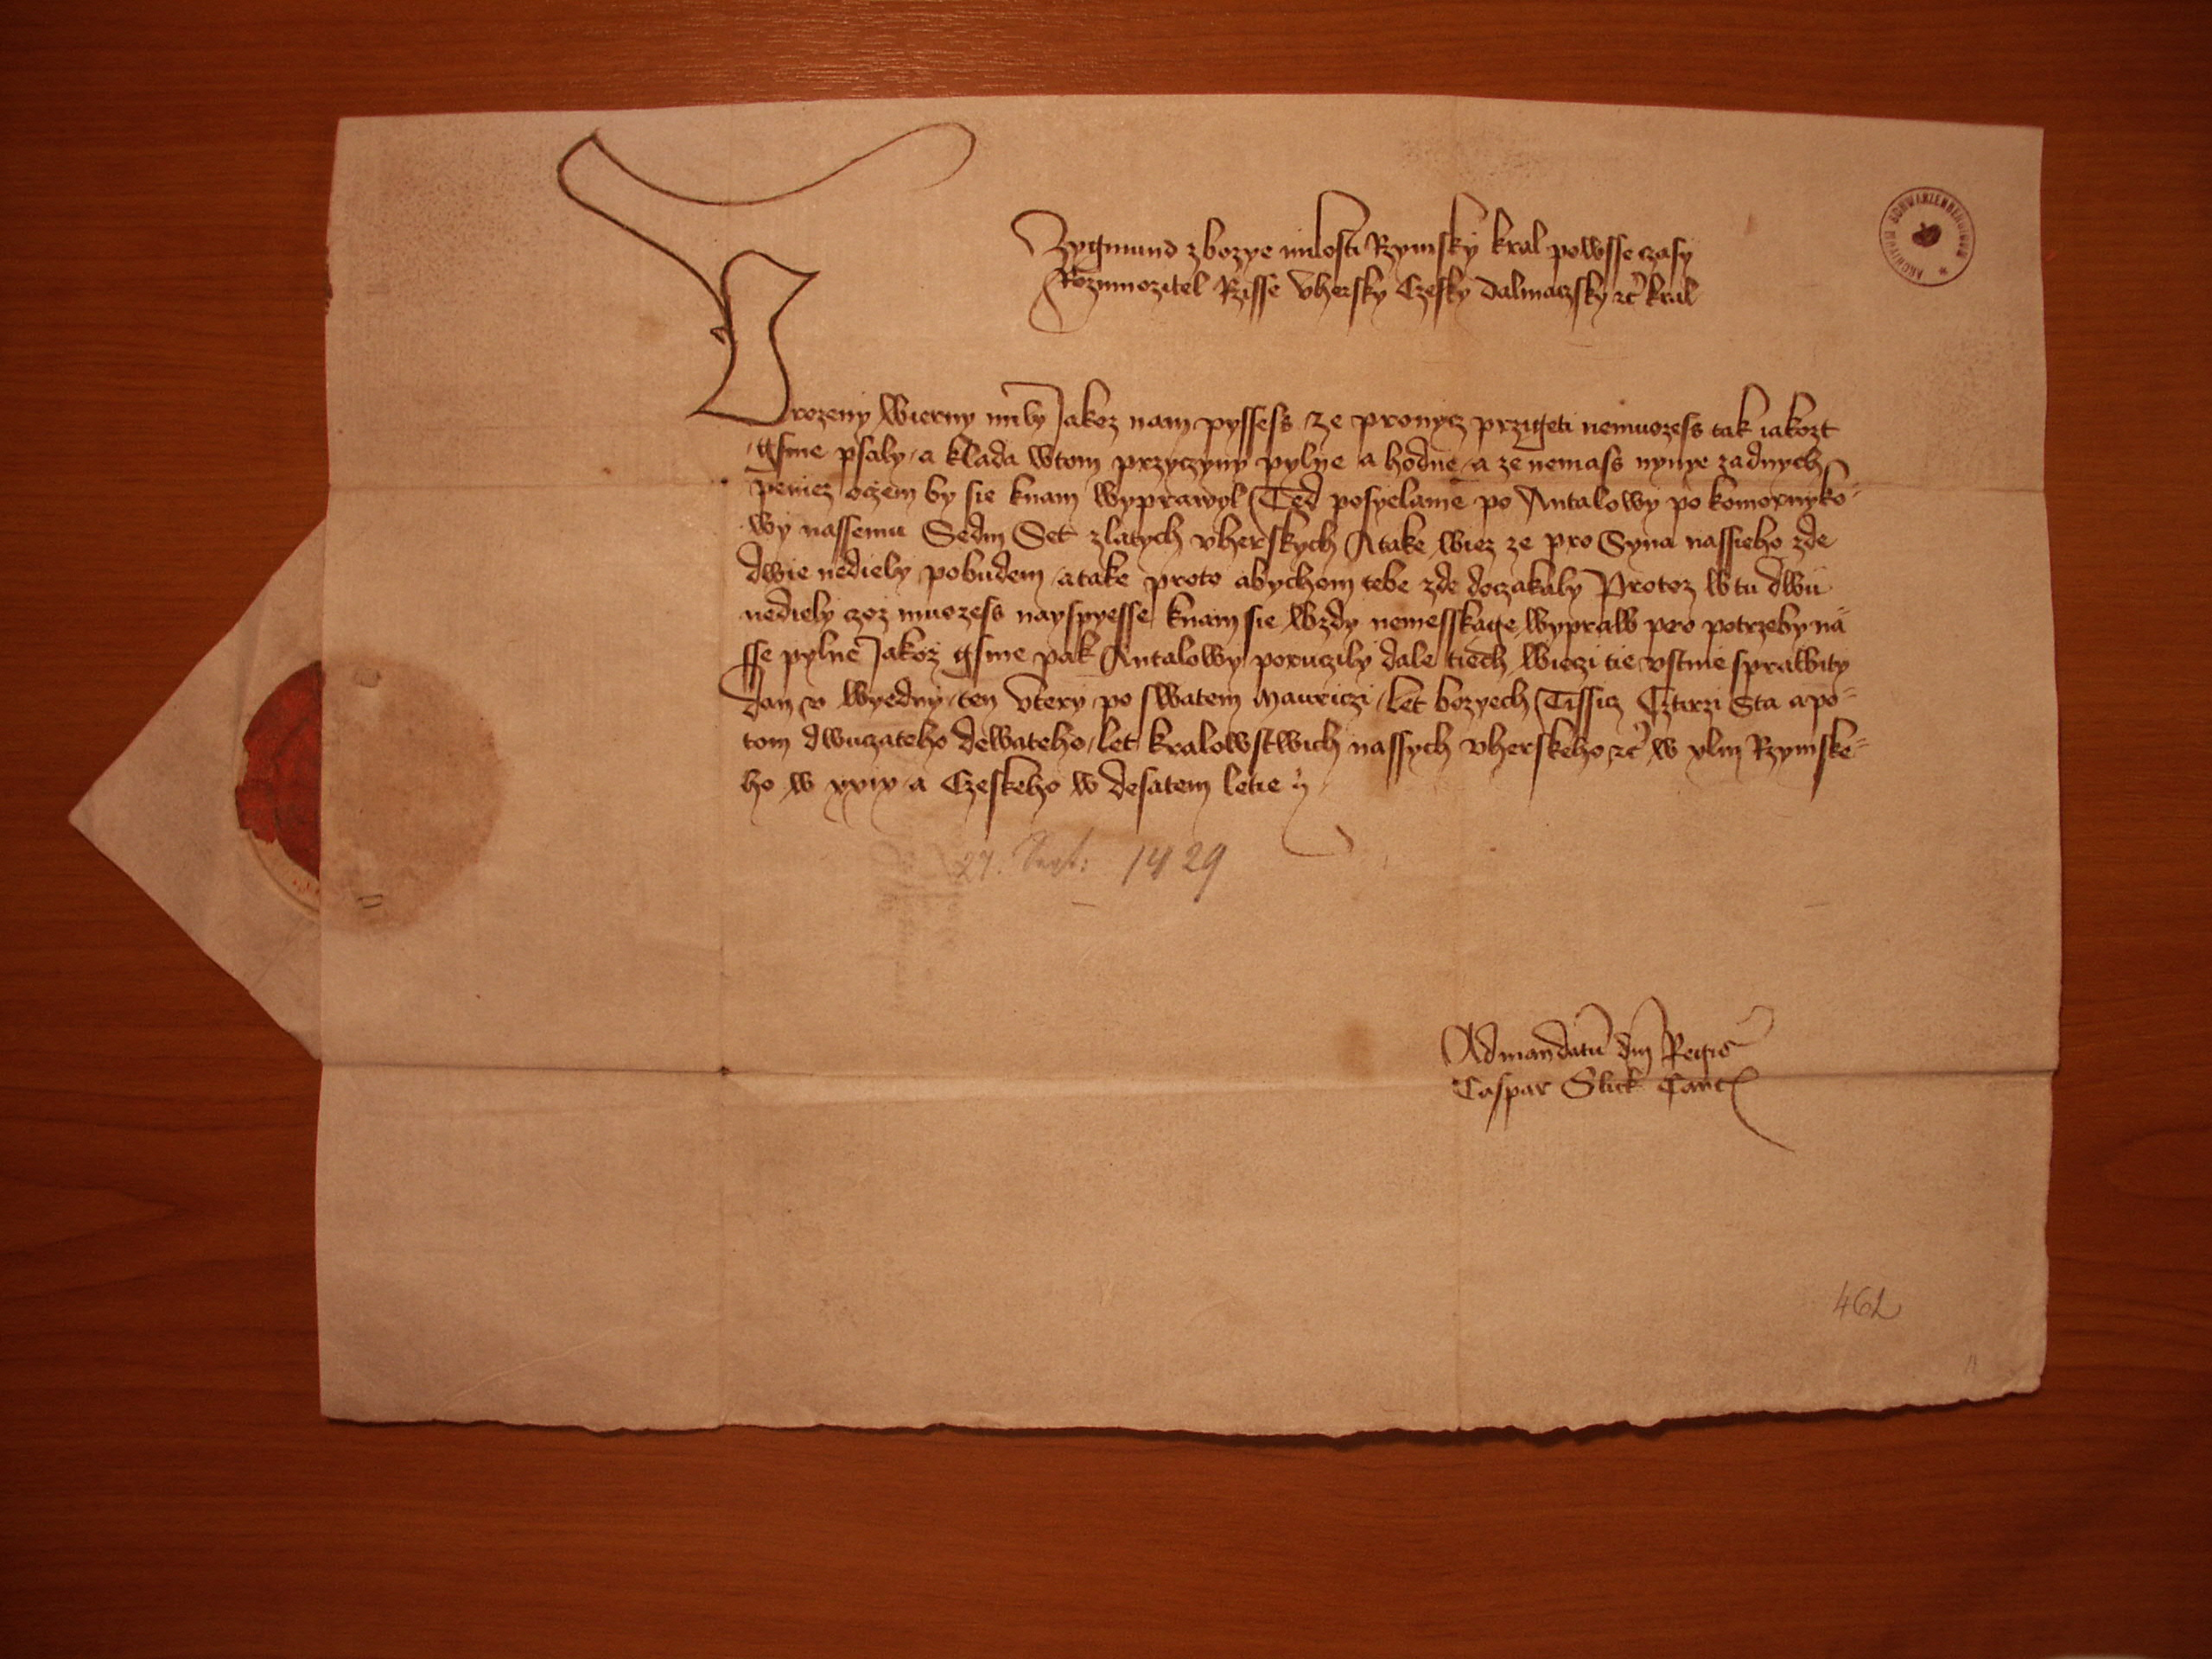 Zygmund z bozye milosti Rzymsky kral powsse czasy
Rozmnozitel Rzisse Uhersky Czesky Dalmaczsky etc kral
ARCHIVUM SCHWARZENBERGICUM
Urozeny wierny mily Jakoz nam pyssess ze pronycz przigeti nemuozess tak iakozt
gsme psaly a klada wtom przyczyny pylne a hodne a ze nemass nynye zadnych
peniez oczem by sie knam wyprawyl Ted posyelame po Antalowy po komornyko-
wy nassemu Sedm Set zlatych uherskych A take wiez ze pro Syna nassieho zde
dwie nediely pobudem a take proto abychom tebe zde doczakaly Protoz w tu dwu
nediely czoz muozess nayspyesse knam sie wzdy nemesskage wypraw pro potrzeby na-
sse pylne Jakoz gsme pak Antalowy poruczily dale tiech wieczi tie ustnie sprawity
Dan v Wyedny ten utery po swatem Mauriczi let bozyech Tissicz Cztirzi Sta a po-
tom dwuczateho dewateho let kralowstwich nassych uherskeho etc w xliii Rzymske-
ho w xxix a Czeskeho w desatem letie
27. Sept: 1429
Ad mandatu dni Regis
Caspar Slick Canc
462